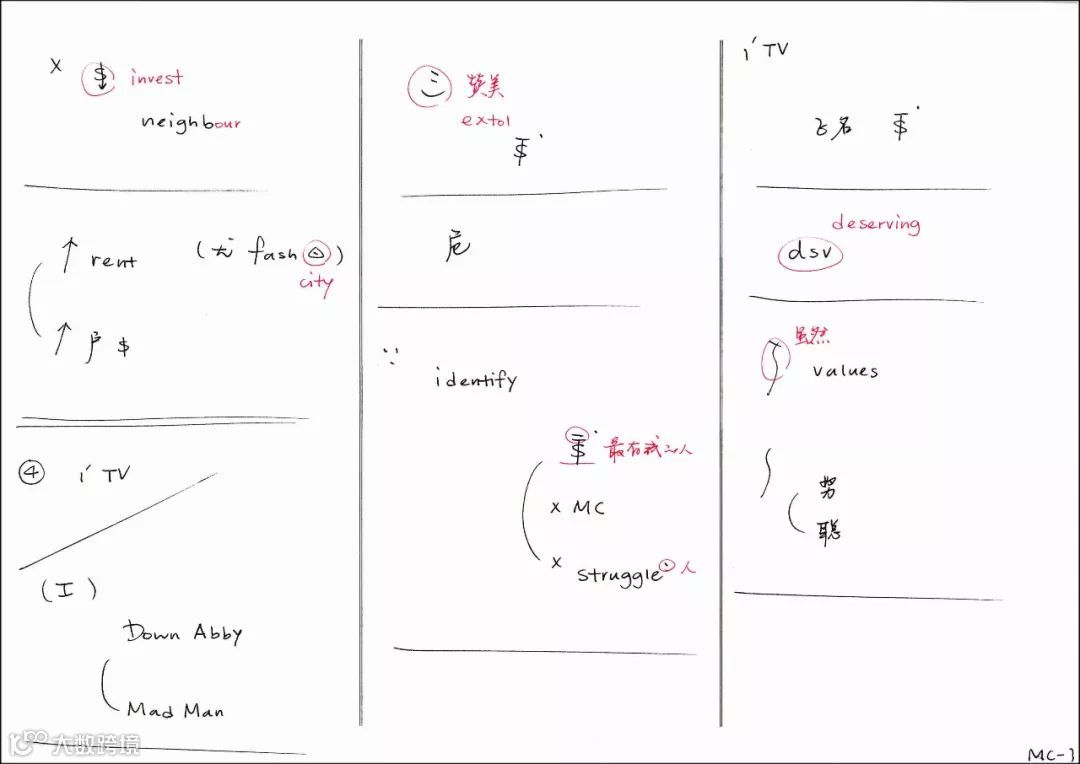 x $ invest
neighbour
↑ rent (尤 fash city)
↑ 户 $
④ i' TV
(工)
Down Abby
Mad Man
赞美
extol
$
危
identify
$ 最有钱之人
x MC
x struggle 人
i' TV
飞名 $
deserving
dsv
虽然
values
努
聪
大数跨境
MC-3